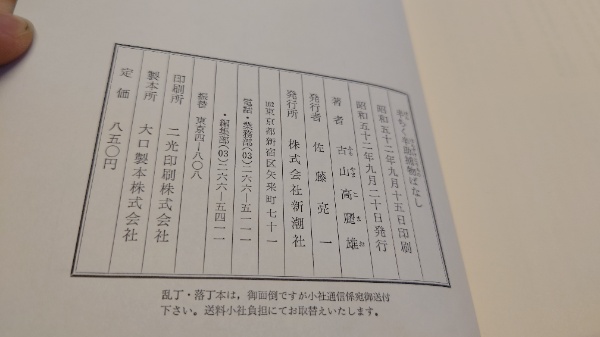 半ちく半助捕物ばなし
昭和五十二年九月十五日印刷
昭和五十二年九月二十日発行
著者 古山高麗雄
発行者 佐藤亮一
発行所 株式会社新潮社
東京都新宿区矢来町七十一
電話・業務部(03)二六六―五一一一
・編集部(03)二六六―五四一一
振替 東京四―八〇八
印刷所 二光印刷株式会社
製本所 大口製本株式会社
定価 八五〇円
乱丁・落丁本は，御面倒ですが小社通信係宛御送付
下さい。送料小社負担にてお取替えいたします。